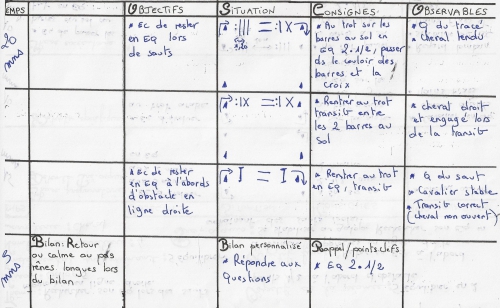 EMPS OBJECTIFS SITUATION CONSIGNES OBSERVABLES
20 mns
* Ec de rester
en EQ lors
de sauts
* Au trot sur les
barres au sol en
EQ 2.1/2, passer
ds le couloir des
barres et la
croix
* Q du tracé
* cheval tendu
* Rentrer au trot
transit entre
les 2 barres au
sol
* cheval droit
et engagé lors
de la transit
* Ec de rester
en EQ à l'abords
d'obstacle en
ligne droite
* Rentrer au trot
en EQ, transit
* Q du saut
* Cavalier stable
* Transit correct
(cheval non ouvert)
5 mns
Bilan: Retour
au calme au pas
rênes longues lors
du bilan
Bilan personnalisé
* Répondre aux
questions
Rappel/points clefs
* EQ 2.1/2